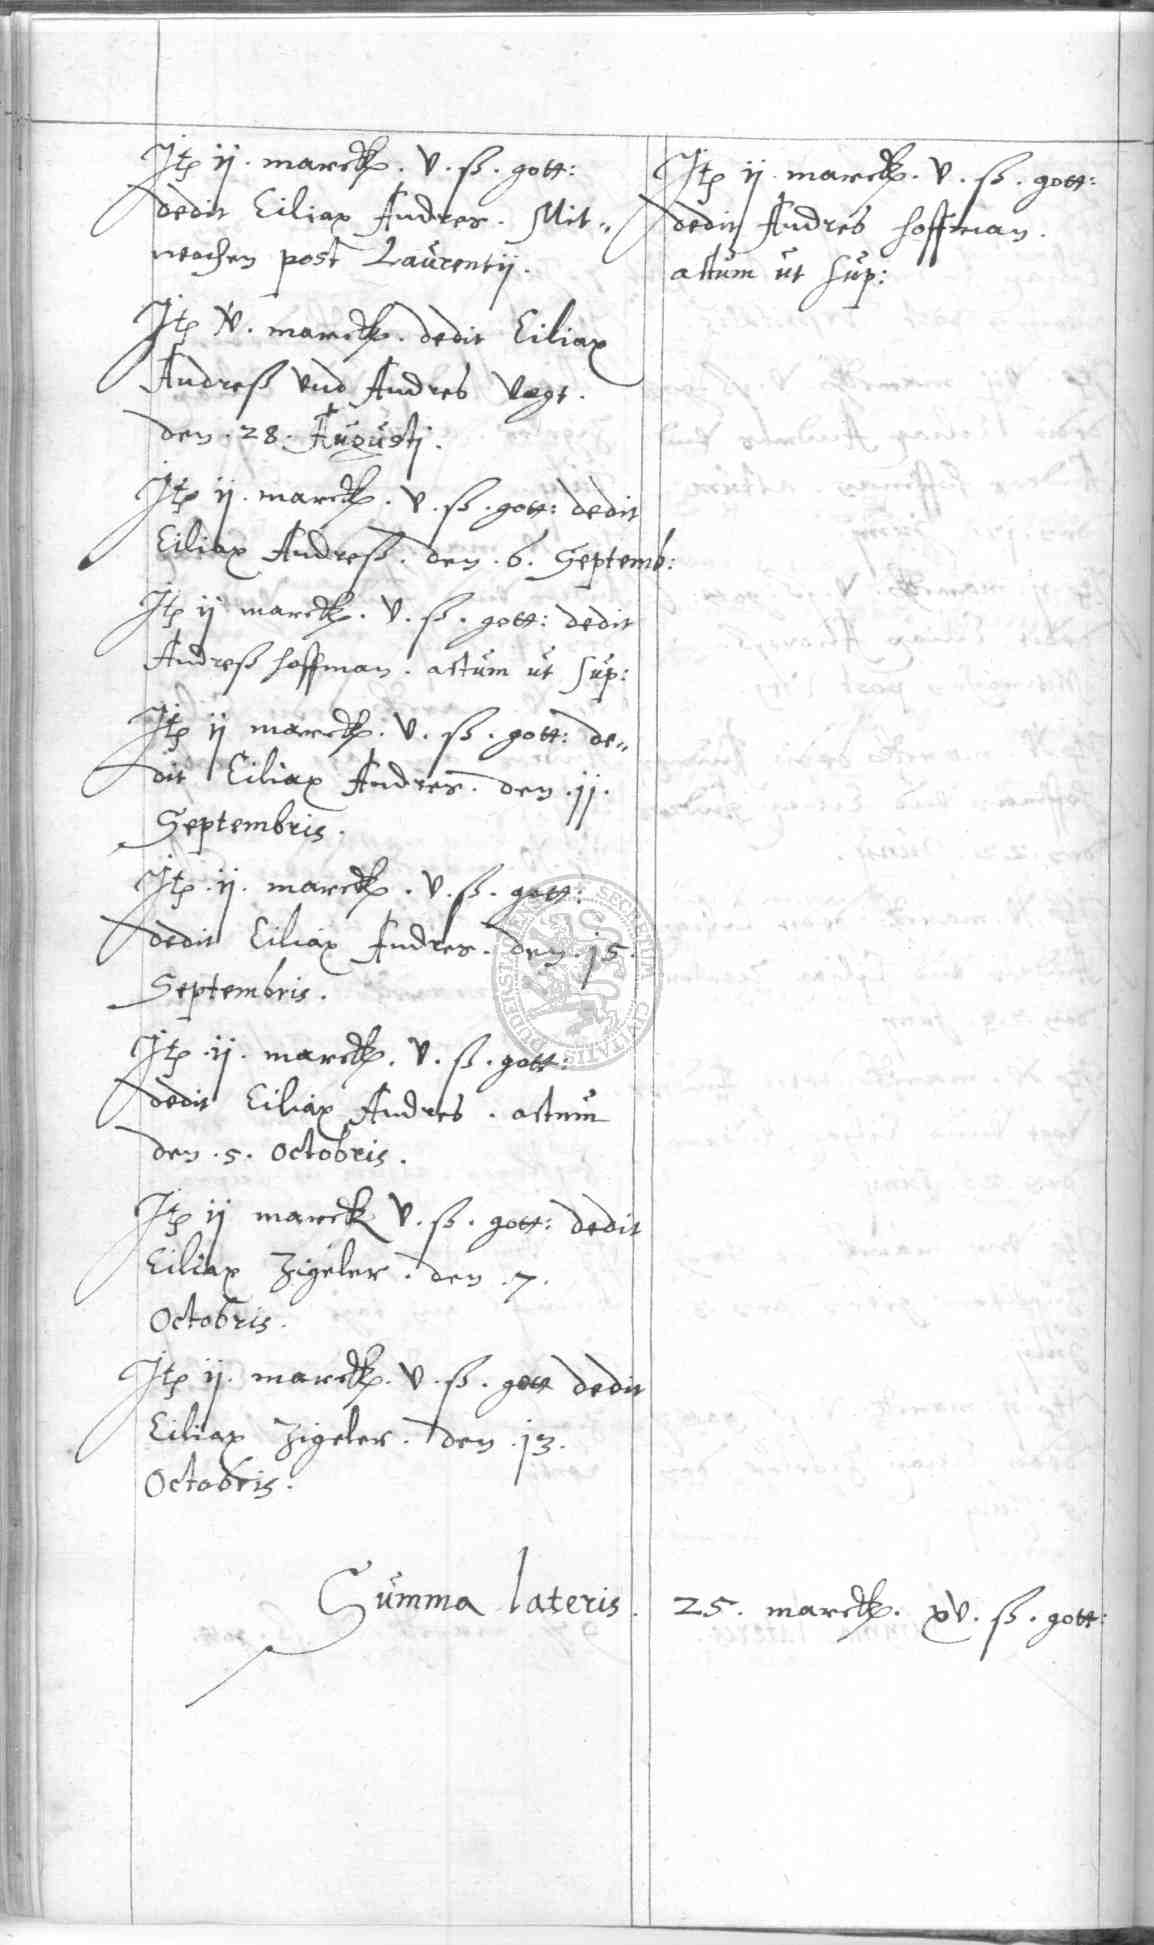 Jtp ij. marck. v. ß. gott:
dedit Ciliax Andres. Mit„
wochen post Laurentij.
Jtp V. marck. dedit Ciliax
Andreß vnd Andres Vogt.
den. 28. Augustj.
Jtp ij. marck. v. ß. gott: dedit
Ciliax Andreß. den. 6. Septemb:
Jtp ij marck. v. ß. gott: dedit
Andreß hoffman. actum ut sup:
Jtp ij marck. v. ß. gott: de„
dit Ciliax Andres. den. jj.
Septembris.
Jtp. ij. marck. v. ß. gott:
dedit Ciliax Andres. den. j5.
Septembris.
Jtp. ij. marck. v. ß. gott:
dedit Ciliax Andres. actum
den. 5. Octobris.
Jtp ij marck v. ß. gott: dedit
Ciliax Zigeler. den. 7.
Octobris.
Jtp ij. marck. v. ß. gott dedit
Ciliax Zigeler. den. j3.
Octobris.
Jtp ij. marck. v. ß. gott:
dedit Andres hoffman.
actum ut sup:
Summa lateris. 25. marck. xv. ß. gott:
SECRETUM CIVITATIS DUDERSTADENSIS